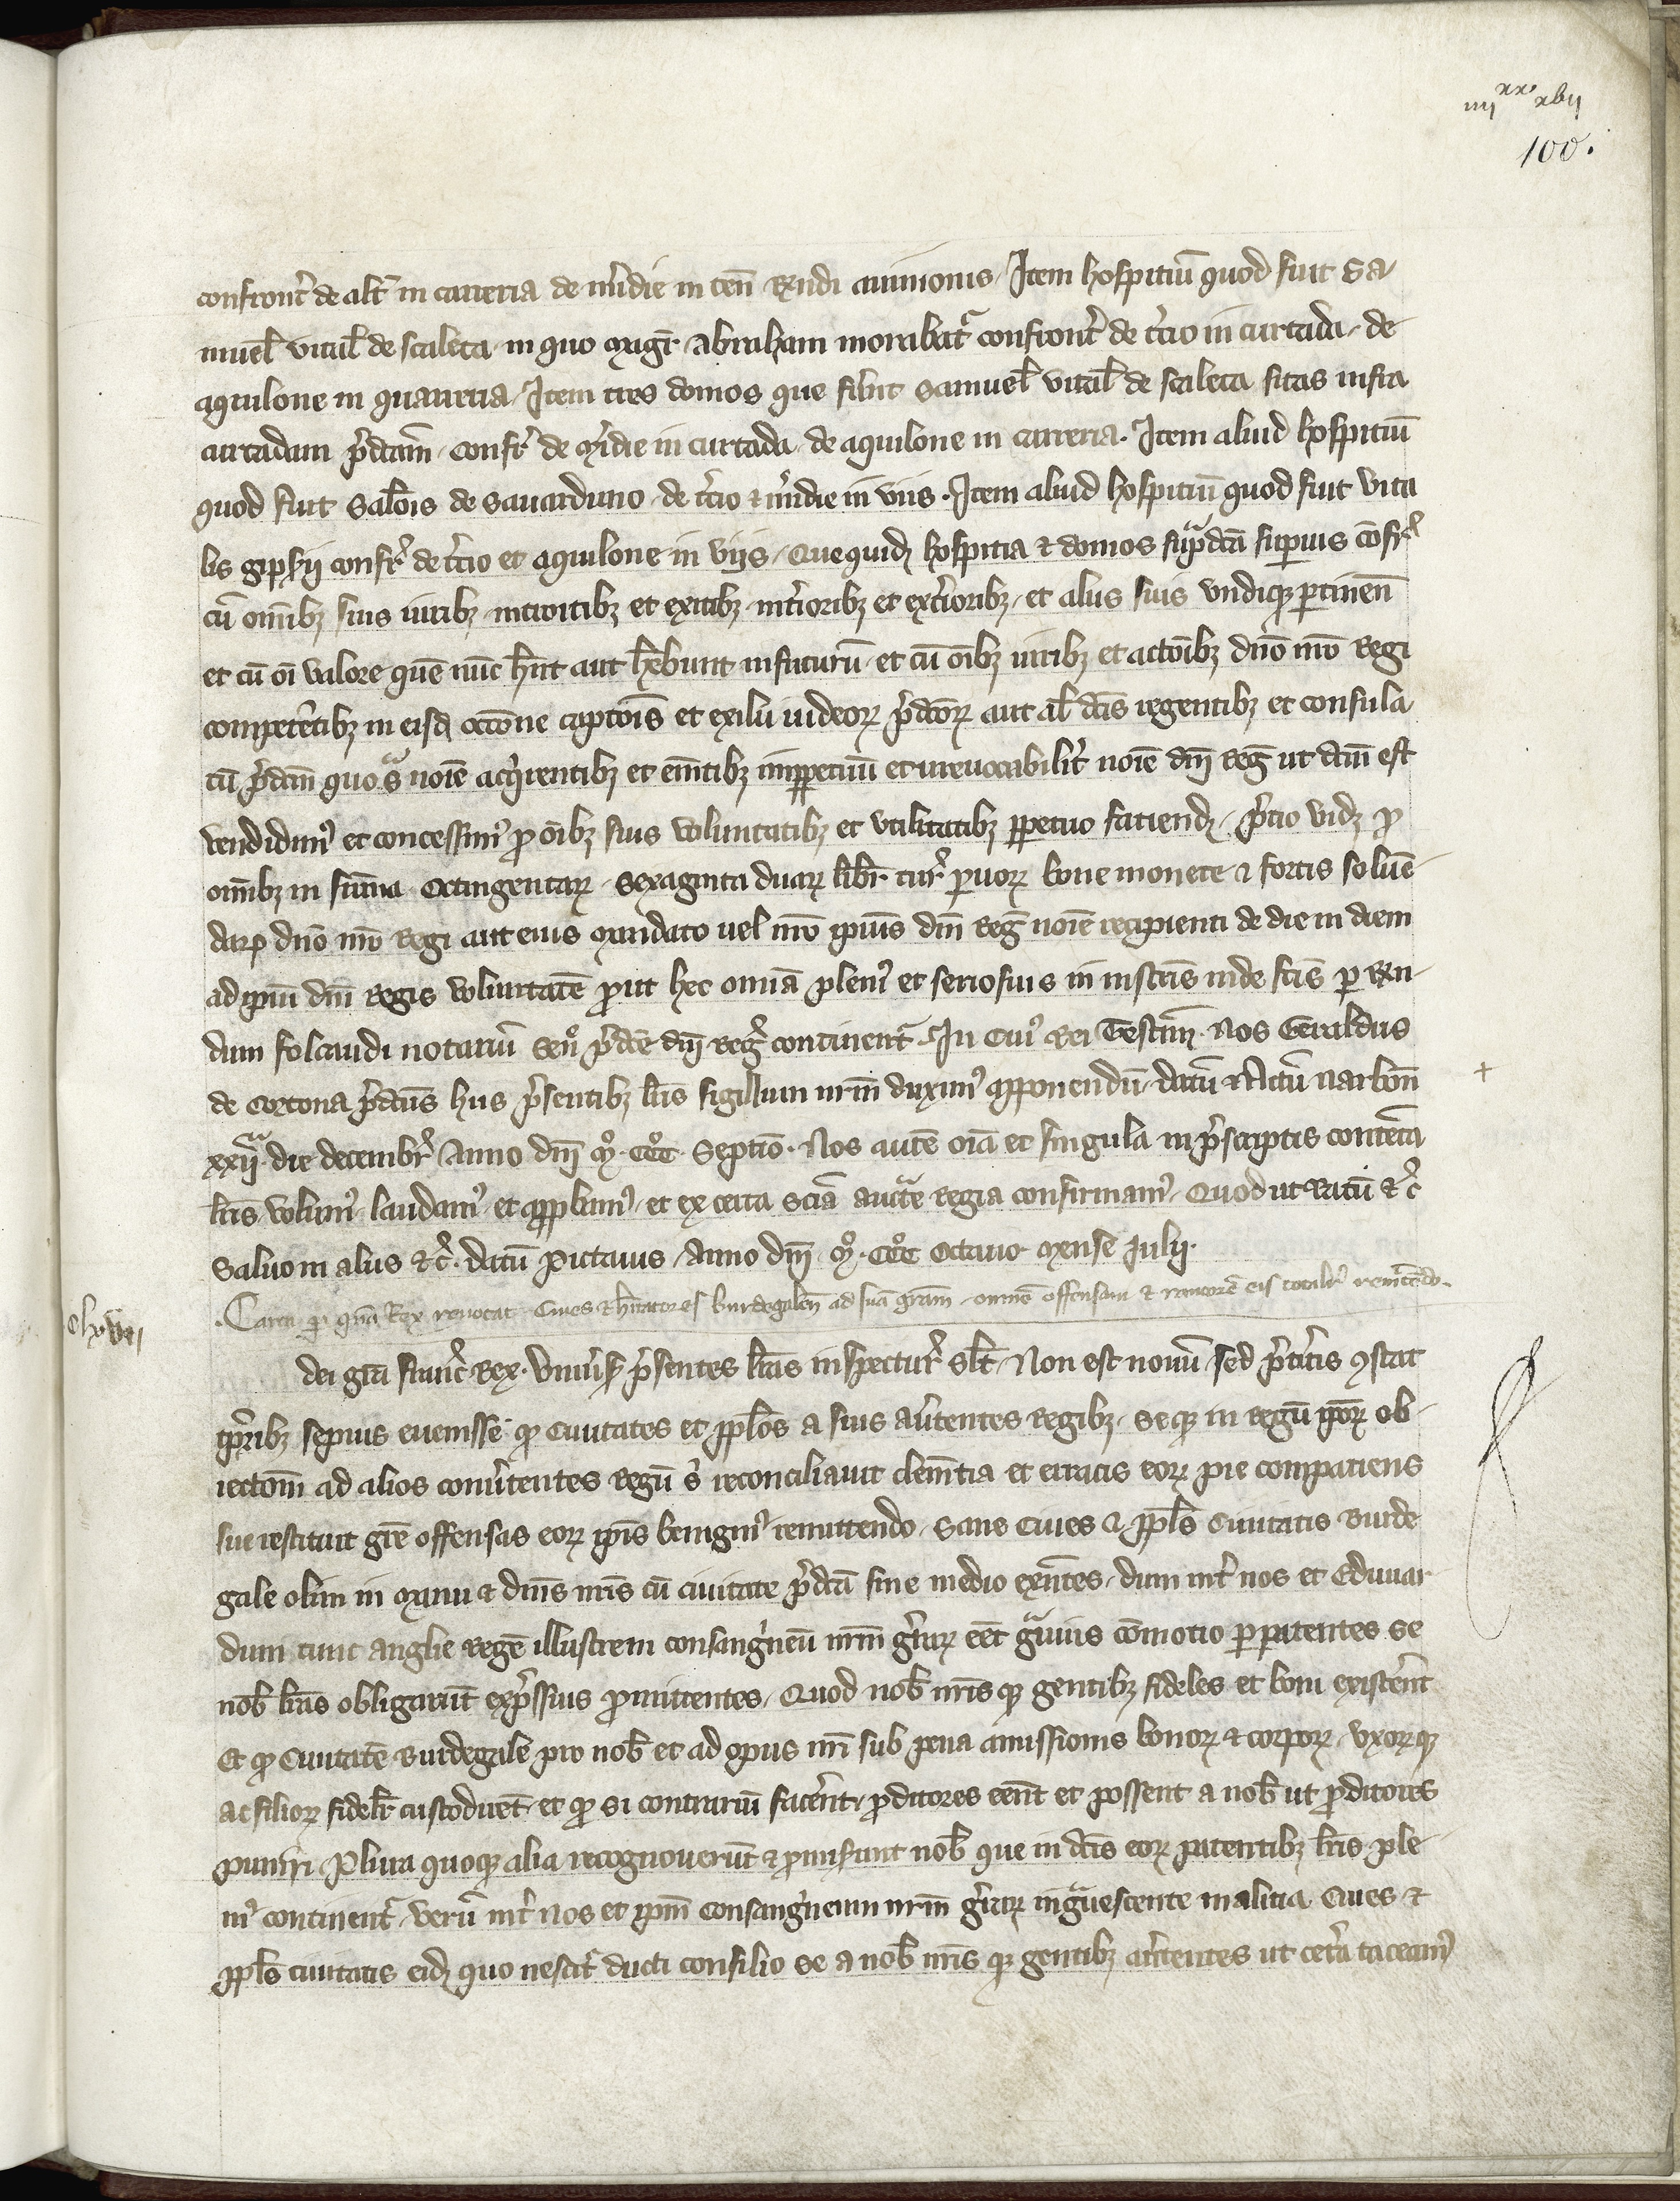 iiij xx xvij
100.
confront̄ de alt̄ in carreria de m̄idie in ten̄ R̄ndi aiuionis. Item hospitiū quod fuit Sa
muel̄ vital̄ de scaleta in quo maḡr Abraham morabat̄ confront̄ de c̄cio in curtada de
aquilone in quarreria. Item tres domos que fūnt Samuel̄ vital̄ de scaleta sitas infra
curtadam p̄dc̄am confr̄ de m̄idie in curtada de aquilone in carreria. Item aliud hospitiū
quod fuit Salōis de Sauarduno de c̄cio & m̄idie in viis. Item aliud hospitiū quod fuit vita
lis gipsij confr̄ de c̄cio et aquilone in vijs. Que quidꝫ hospitia & domos sup̄dc̄a supius cōfr̄
cū om̄ibꝫ suis iuribꝫ introitibꝫ et exitibꝫ int̄ioribꝫ et ext̄ioribꝫ et aliis suis vndiqꝫ ptinen̄
et cū oī valore quē nūc hn̄t aut hēbunt in futurū et cū oībꝫ iuribꝫ et actōibꝫ dn̄o nr̄o Regi
competētibꝫ in eisd̄ occōne captōis et exilii iudeoꝝ p̄dc̄oꝝ aut al̄ dc̄is regentibꝫ et consula
tū p̄dc̄m quo s̄ noīe acq̄rentibꝫ et em̄tibꝫ imppetuū et irreuocabilit̄ noīe dn̄i Reḡ ut dc̄m est
vendidim⁹ et concessim⁹ p̄ oībꝫ suis voluntatibꝫ et vtilitatibꝫ ppetuo faciendꝫ p̄cio vidꝫ p̄
om̄ibꝫ in sūma octingentaꝝ sexaginta duaꝝ libr̄ tur̄ paruoꝝ bone monete & fortis soluē
daꝝ dn̄o nr̄o Regi aut eius mandato uel nr̄o ipsius dn̄i Reḡ noīe recipienti de die in diem
ad ip̄iu dn̄i Regis voluntatē p̄ut hec omīa pleni⁹ et seriosius in instr̄is inde fc̄is p Rn̄
dum folcaudi notariū sen̄ p̄dc̄e dn̄i Reḡ continent̄. In Cui⁹ Rei Testim̄. Nos Geraldus
de Cortona p̄dc̄us hiis p̄sentibꝫ lr̄is sigillum nr̄m duxim⁹ apponendū. datū & Actū Narbon̄
+
xxij. die decembr̄ Anno dn̄i m̊. ccc̊. septīo. Nos autē oīa et singula in p̄scriptis contēta
lr̄is volum⁹ laudam⁹ et app̄bam⁹ et ex certa scīa auctīte Regia confirmam⁹. Quod ut Ratū &c̄
Saluo in aliis &c̄. datū Pictauis Anno dn̄i m̊. ccc̊ octauo mense Julij.
Carta p quā Rex reuocat Ciues & hītatores burdegalen̄ ad suā grām omnē offensam & rancorē eis totalr̄ remittēdo.
dei grā franc̄ Rex. Vniūs̄ p̄sentes lr̄as inspectur̄ sl̄t. Non est nouū sed p̄teritis ꝯstat
tp̄ribꝫ sepius euenisse qꝫ Ciuitates et pplōs a suis aūtentes Regibꝫ seqꝫ in Regū ip̄oꝝ ob
iectōm ad alios conūtentes Regū s̄ reconciliauit clem̄tia et erratis eoꝝ pie compatiens
sue restituit grē offensas eoꝝ ip̄is benigni⁹ remittendo. Sane Ciues & pplūs Ciuitatis Burde
gale olim in manu & dn̄is nr̄is cū ciuitate p̄dc̄a sine medio exn̄tes. dum int̄ nos et Eduuar
dum tunc anglie regē illustrem consanḡneū nr̄m gūraꝝ eēt grauis cōmotio p patentes se
nob̄ lr̄as obligarūt exp̄ssius p̄mittentes. Quod nob̄ nr̄isqꝫ gentibꝫ fideles et boni existēnt
Et qꝫ Ciuitatē Burdegalē pro nob̄ et ad opus nr̄i sub pena amissionis bonoꝝ & corpoꝝ vxoꝝqꝫ
ac filioꝝ fidelr̄ custodirēt et qꝫ si contrariū facēnt p̄ditores eēnt et possent a nob̄ ut p̄ditores
puniri. Plura quoqꝫ alia recognouerūt & p̄miserunt nob̄ que in dc̄is eoꝝ patentibꝫ lr̄is ple
ni⁹ continent̄. verū int̄ nos et ip̄m Consanḡneum nr̄m gūraꝝ ingrauescente malicia Ciues &
pplūs ciuitatis eidꝫ quo nescit̄ ducti consilio se a nob̄ nr̄isqꝫ gentibꝫ aūtentes ut cet̄a taceam⁹